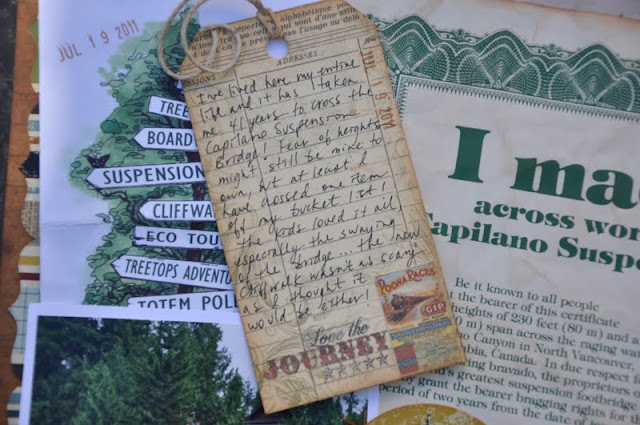 JUL 19 2011
TREE
BOARD
SUSPENSION
CLIFFWA
ECO TOU
TREETOPS ADVENTU
TOTEM POL
alphabétique
ADRESSES
SIONS
I've lived here my entire
life and it has taken
me 41 years to cross the
Capilano Suspension
Bridge! Fear of heights
might still be mine to
own, but at least I
have crossed one item
off my bucket list!
The kids loved it all,
especially the swaying
of the bridge... the "new"
cliffwalk wasn't as scary
as I thought it
would be either!
2011
POONA RACES
GIP
Love the
JOURNEY
I ma
across wor
Capilano Suspe
Be it known to all people
at the bearer of this certificate
heights of 230 feet (80 m) and a
m) span across the raging wa
no Canyon in North Vancouver,
bia, Canada. In due respect
being bravado, the proprietors o
d's greatest suspension footbridge
by grant the bearer bragging rights for t
period of two years from the date of